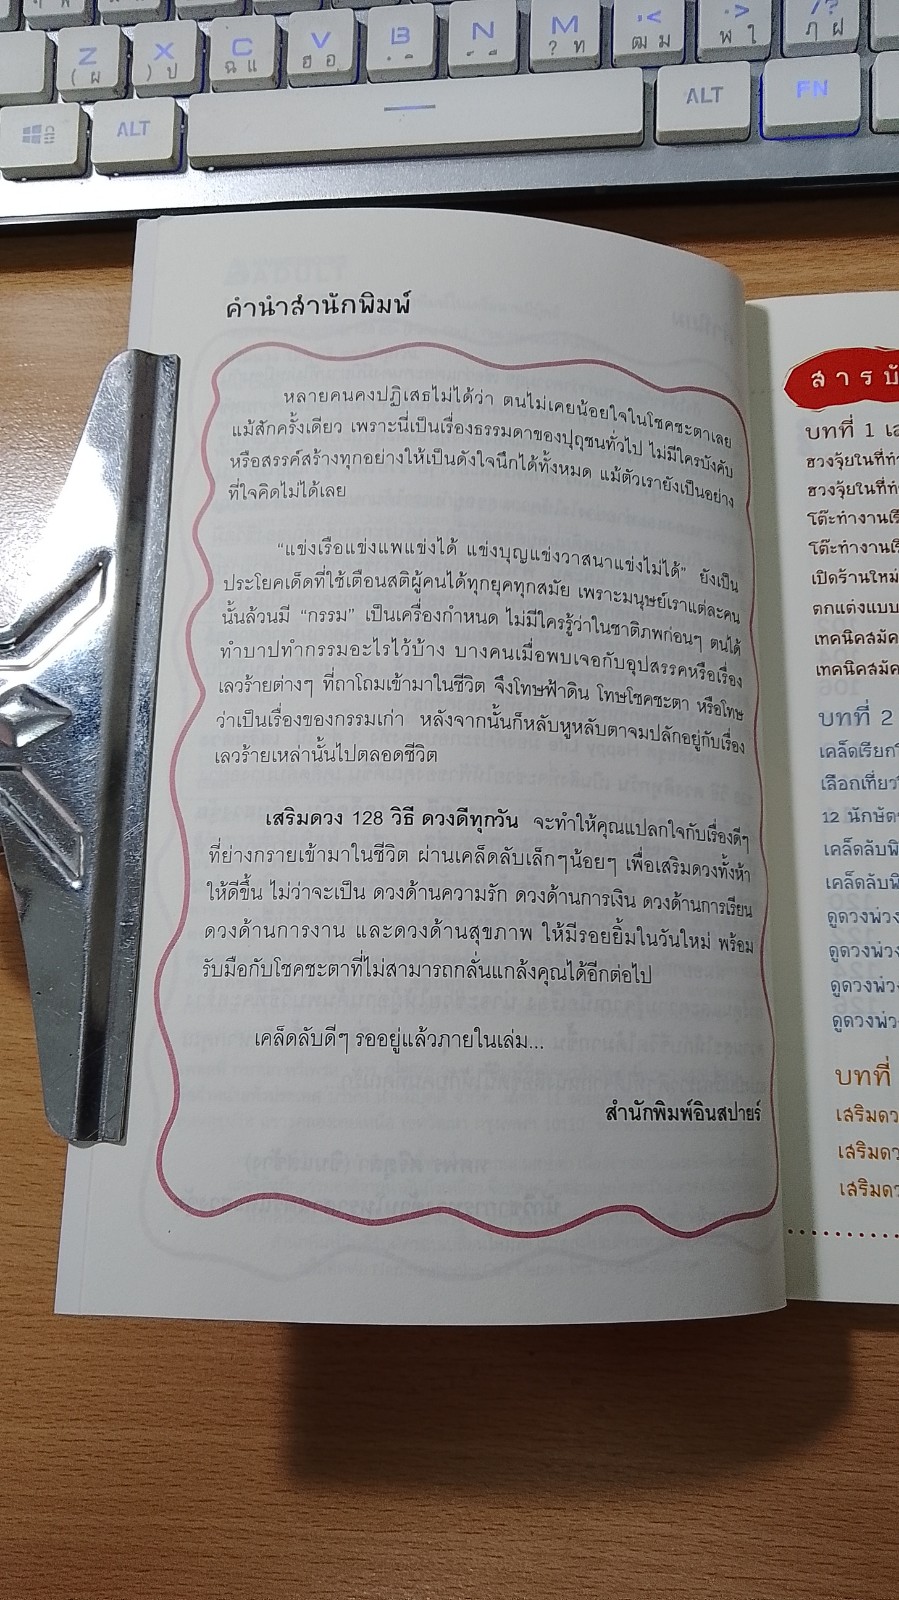 Z
(ผ
X
)ป
C
ฉแ
V
ฮอ
B
N
M
?ท
,<
ฒม
.>
พใ
/?
ฦฝ
ALT
ALT
FN
คำนำสำนักพิมพ์
หลายคนคงปฏิเสธไม่ได้ว่า ตนไม่เคยน้อยใจในโชคชะตาเลย
แม้สักครั้งเดียว เพราะนี่เป็นเรื่องธรรมดาของปุถุชนทั่วไป ไม่มีใครบังคับ
หรือสรรค์สร้างทุกอย่างให้เป็นดังใจนึกได้ทั้งหมด แม้ตัวเรายังเป็นอย่าง
ที่ใจคิดไม่ได้เลย
“แข่งเรือแข่งแพแข่งได้ แข่งบุญแข่งวาสนาแข่งไม่ได้” ยังเป็น
ประโยคเด็ดที่ใช้เตือนสติผู้คนได้ทุกยุคทุกสมัย เพราะมนุษย์เราแต่ละคน
นั้นล้วนมี “กรรม” เป็นเครื่องกำหนด ไม่มีใครรู้ว่าในชาติภพก่อนๆ ตนได้
ทำบาปทำกรรมอะไรไว้บ้าง บางคนเมื่อพบเจอกับอุปสรรคหรือเรื่อง
เลวร้ายต่างๆ ที่ถาโถมเข้ามาในชีวิต จึงโทษฟ้าดิน โทษโชคชะตา หรือโทษ
ว่าเป็นเรื่องของกรรมเก่า หลังจากนั้นก็หลับหูหลับตาจมปลักอยู่กับเรื่อง
เลวร้ายเหล่านั้นไปตลอดชีวิต
เสริมดวง 128 วิธี ดวงดีทุกวัน จะทำให้คุณแปลกใจกับเรื่องดีๆ
ที่ย่างกรายเข้ามาในชีวิต ผ่านเคล็ดลับเล็กๆน้อยๆ เพื่อเสริมดวงทั้งห้า
ให้ดีขึ้น ไม่ว่าจะเป็น ดวงด้านความรัก ดวงด้านการเงิน ดวงด้านการเรียน
ดวงด้านการงาน และดวงด้านสุขภาพ ให้มีรอยยิ้มในวันใหม่ พร้อม
รับมือกับโชคชะตาที่ไม่สามารถกลั่นแกล้งคุณได้อีกต่อไป
เคล็ดลับดีๆ รออยู่แล้วภายในเล่ม...
สำนักพิมพ์อินสปายร์
สารบั
บทที่ 1 เส
ฮวงจุ้ยในที่ทำ
ฮวงจุ้ยในที่ทำ
โต๊ะทำงานเรี
โต๊ะทำงานเรี
เปิดร้านใหม่
ตกแต่งแบบ
เทคนิคสมัค
เทคนิคสมัค
บทที่ 2
เคล็ดเรียก
เลือกเที่ยว
12 นักษัต
เคล็ดลับพิ
เคล็ดลับพิ
ดูดวงพ่วง
ดูดวงพ่วง
ดูดวงพ่ว
ดูดวงพ่ว
บทที่
เสริมดว
เสริมดว
เสริมดว